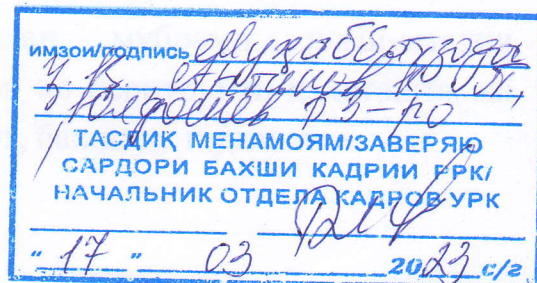 имзои/подпись Муҳаббатзода
Ҷ. В. Антипов К. П.,
Юлдошев Р. З-ро
ТАСДИҚ МЕНАМОЯМ/ЗАВЕРЯЮ
САРДОРИ БАХШИ КАДРИИ РРК/
НАЧАЛЬНИК ОТДЕЛА КАДРОВ УРК
" 17 " 03 2023 с/г